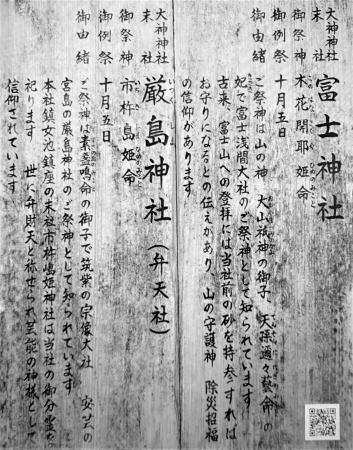 大神神社
末社
富士神社
御祭神 木花開耶姫命
御例祭 十月五日
御由緒
ご祭神は山の神 大山祇神の御子、天孫邇々藝命の
妃で富士浅間大社のご祭神として知られています
古来、富士山への登拝には当社前の砂を持参すれば
お守りになるとの伝えがあり、山の守護神 除災招福
の信仰があります
大神神社
末社
厳島神社（弁天社）
いつくしま
御祭神 市杵島姫命
御例祭 十月五日
御由緒
ご祭神は素盞鳴命の御子で筑紫の宗像大社 安芸の
宮島の厳島神社のご祭神として知られています
本社鎮女池鎮座の末社市杵嶋姫神社は当社の御分霊を
祀ります 世に弁財天と称せられ芸能の神様として
信仰されています